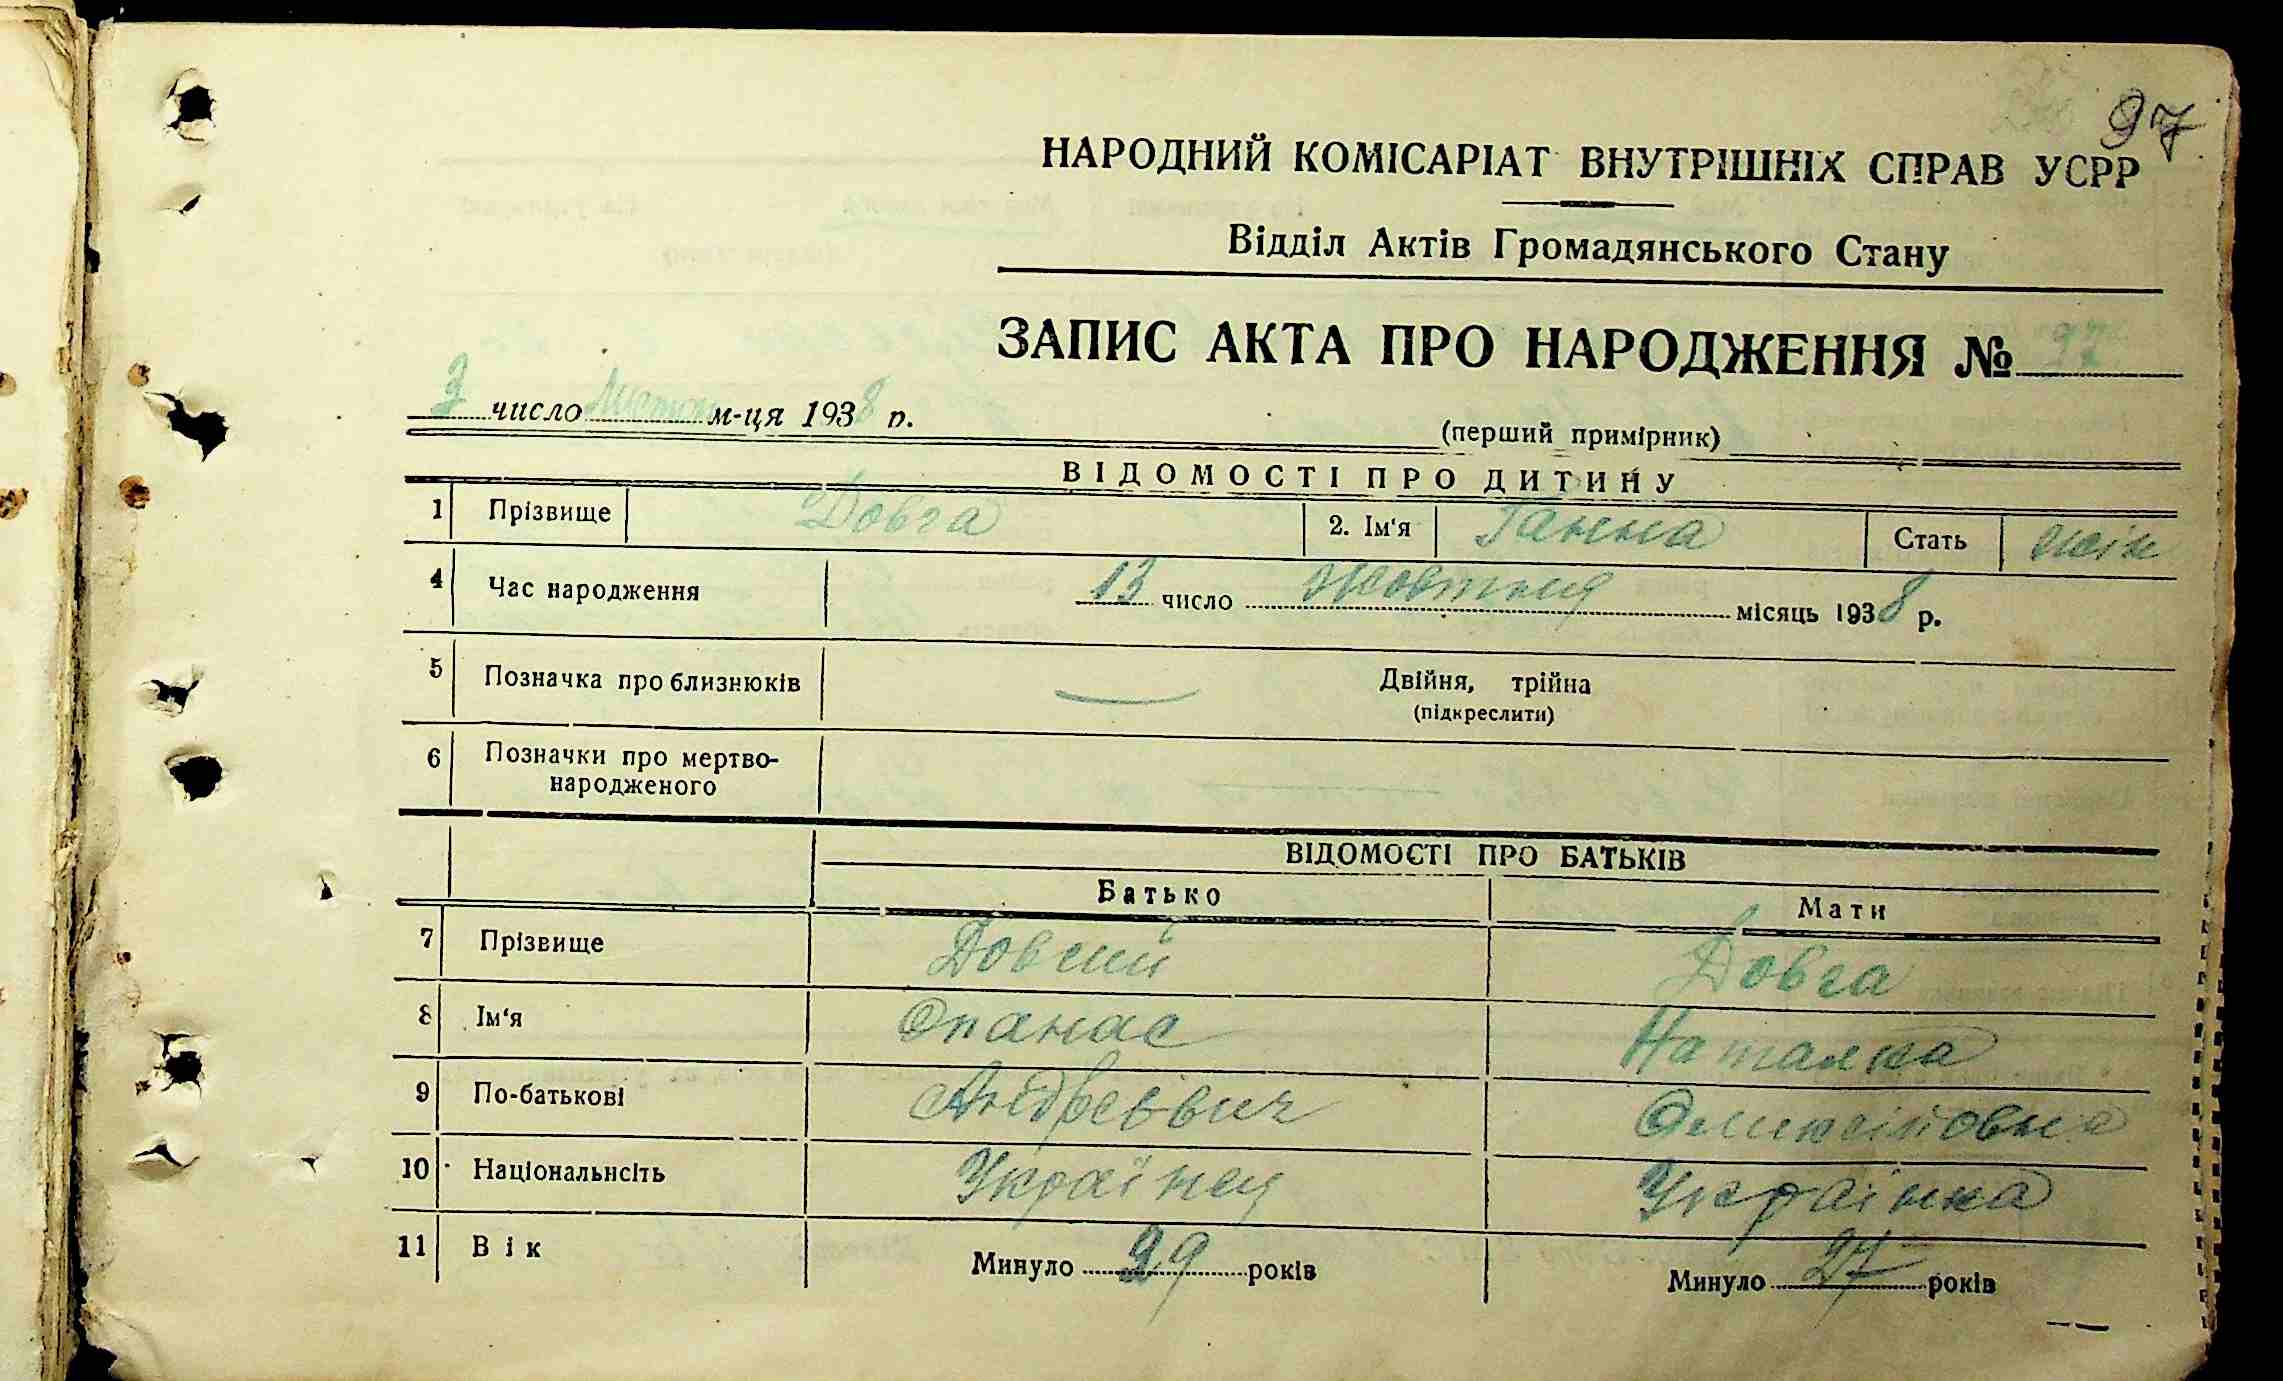 97
НАРОДНИЙ КОМІСАРІАТ ВНУТРІШНІХ СПРАВ УСРР
Відділ Актів Громадянського Стану
ЗАПИС АКТА ПРО НАРОДЖЕННЯ № 97
3 число Листоп м-ця 1938 р.
(перший примірник)
ВІДОМОСТІ ПРО ДИТИНУ
1 Прізвище Довга 2. Ім'я Ганна Стать жін
4 Час народження 13 число Жовтня місяць 1938 р.
5 Позначка про близнюків Двійня, трійна
(підкреслити)
6 Позначки про мертво-
народженого
ВІДОМОСТІ ПРО БАТЬКІВ
Батько Мати
7 Прізвище Довгий Довга
8 Ім'я Опанас Наталка
9 По-батькові Андреєвич
10 Національнсіть Українец Українка
11 Вік Минуло 29 років Минуло 27 років